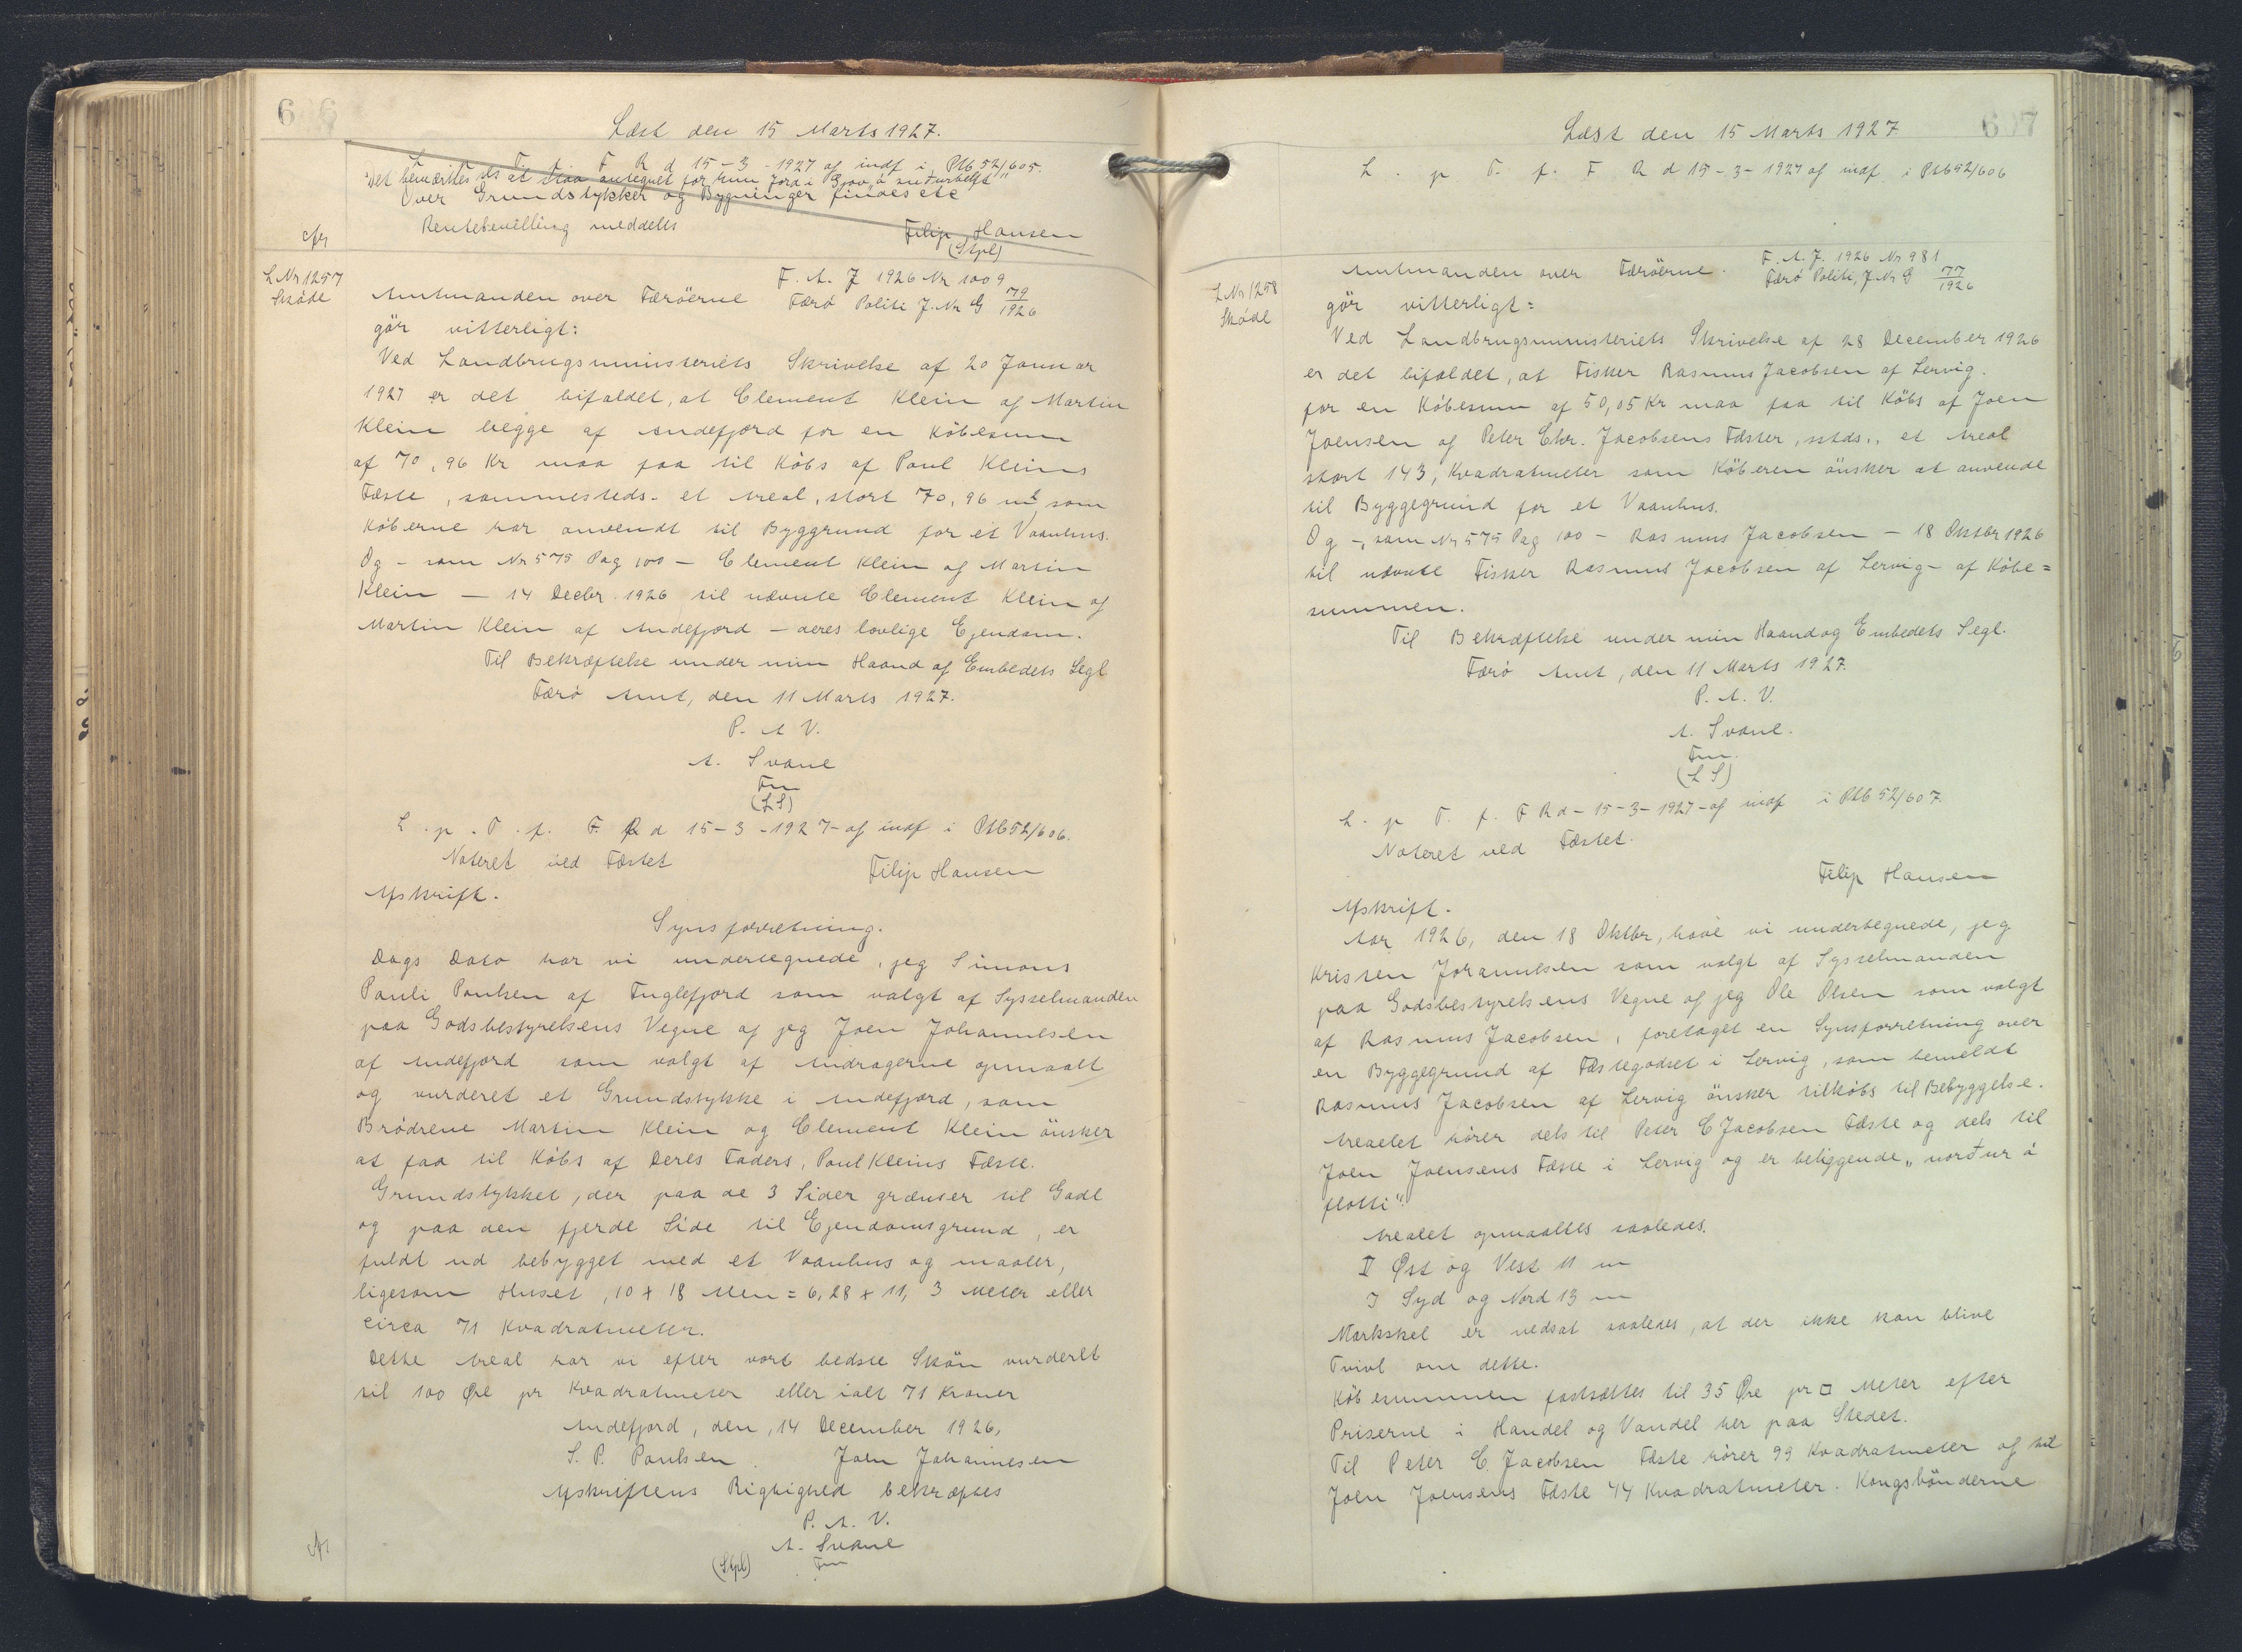 606
Læst den 15 Marts 1927.
L. p. T. f. F R d 15-3-1927 og indf i Ptb 52/605.
Det bemærkes at
Over Grundstykker og Bygninger findes etc
Rentebevilling meddelts
Filip Hansen
(Stpl)
Afg
L Nr 1257
Skøde
F. A. J 1926 Nr 1009
Amtmanden over Færöerne Færø Politi J. Nr G 79/1926
gör vitterligt:
Ved Landbrugsministeriets Skrivelse af 20 Januar
1927 er det bifaldet, at Clement Klein og Martin
Klein begge af Andefjord for en Købesum
af 70,96 Kr maa faa til Købs af Poul Kleins
Fæste, sammesteds. et Areal, stort 70,96 m2 som
Køberne har anvendt til Byggrund for et Vaanhus.
Og - som Nr 575 Pag 100 - Clement Klein og Martin
Klein - 14 Decbr 1926 til nævnte Clement Klein og
Martin Klein af Andefjord - deres lovlige Ejendom.
Til Bekræftelse under min Haand og Embedets Segl
Færø Amt, den 11 Marts 1927.
P. A V.
A. Svane
Fm
(LS)
L. p. T. f. F. R d 15-3-1927- og indf i Ptb 52/606.
Noteret ved Fæstet
Filip Hansen
Afskrift.
Synsforretning.
Dags Dato har vi undertegnede, jeg Simons
Pauli Poulsen af Fuglefjord som valgt af Sysselmanden
paa Godsbestyrelsens Vegne og jeg Joen Johannesen
af Andefjord som valgt af Andragerne opmaalt
og vurderet et Grundstykke i Andefjord, som
Brødrene Martin Klein og Clement Klein önsker
at faa til Købs af Deres Faders, Poul Kleins Fæste.
Grundstykket, der paa de 3 Sider grænser til Gade
og paa den fjerde Side til Ejendomsgrund, er
fuldt ud bebygget med et Vaanhus og maaler,
ligesom Huset, 10 x 18 Alen = 6,28 x 11,3 Meter eller
circa 71 Kvadratmeter.
Dette Areal har vi efter vort bedste Skön vurderet
til 100 Øre pr Kvadratmeter eller ialt 71 Kroner
Andefjord, den, 14 December 1926,
S. P. Poulsen. Joen Johannesen
Afskriftens Rigtighed bekræftes
P. A. V.
A. Svane
(Stpl) Fm
Afg
607
Læst den 15 Marts 1927
L. p T. f. F R d 15-3-1927 og indf i Ptb 52/606
L Nr 1258
Skøde
F. A. J. 1926 Nr 981
Amtmanden over Færöerne. Færø Politi, J. Nr G 77/1926
gör vitterligt:
Ved Landbrugsministeriets Skrivelse af 28 December 1926
er det bifaldet, at Fisker Rasmus Jacobsen af Lervig.
for en Købesum af 50,05 Kr maa faa til Købs af Joen
Joensen og Peter Chr. Jacobsens Fæster, sstds., et Areal
stort 143, Kvadratmeter som Køberen önsker at anvende
til Byggegrund for et Vaanhus.
Og -, som Nr 575 Pag 100 - Rasmus Jacobsen - 18 Oktbr 1926
til nævnte Fisker Rasmus Jacobsen af Lervig - af Købe=
summen.
Til Bekræftelse under min Haand og Embedets Segl.
Færø Amt, den 11 Marts 1927.
P. A. V.
A. Svane.
Fm.
(L S)
L. p T. f. F R d - 15-3-1927 - og indf i Ptb 52/607.
Noteret ved Fæstet.
Filip Hansen
Afskrift.
Aar 1926, den 18 Oktbr, have vi undertegnede, jeg
Kristen Johannesen som valgt af Sysselmanden
paa Godsbestyrelsens Vegne og jeg Ole Olsen som valgt
af Rasmus Jacobsen, foretaget en Synsforretning over
en Byggegrund af Fæstegodset i Lervig, som bemeldt
Rasmus Jacobsen af Lervig önsker tilkøbs til Bebyggelse.
Arealet hører dels til Peter C Jacobsen Fæste og dels til
Joen Joensens Fæste i Lervig og er beliggende „norður á
flotti"
Arealet opmaaltes saaledes.
I Øst og Vest 11 m
I Syd og Nord 13 m
Markskel er nedsat saaledes, at der ikke kan blive
Tvivl om dette.
Købesummen fastsættes til 35 Øre pr □ Meter efter
Priserne i Handel og Vandel her paa Stedet.
Til Peter C. Jacobsen Fæste hører 99 Kvadratmeter og til
Joen Joensens Fæste 44 Kvadratmeter. Kongsbönderne